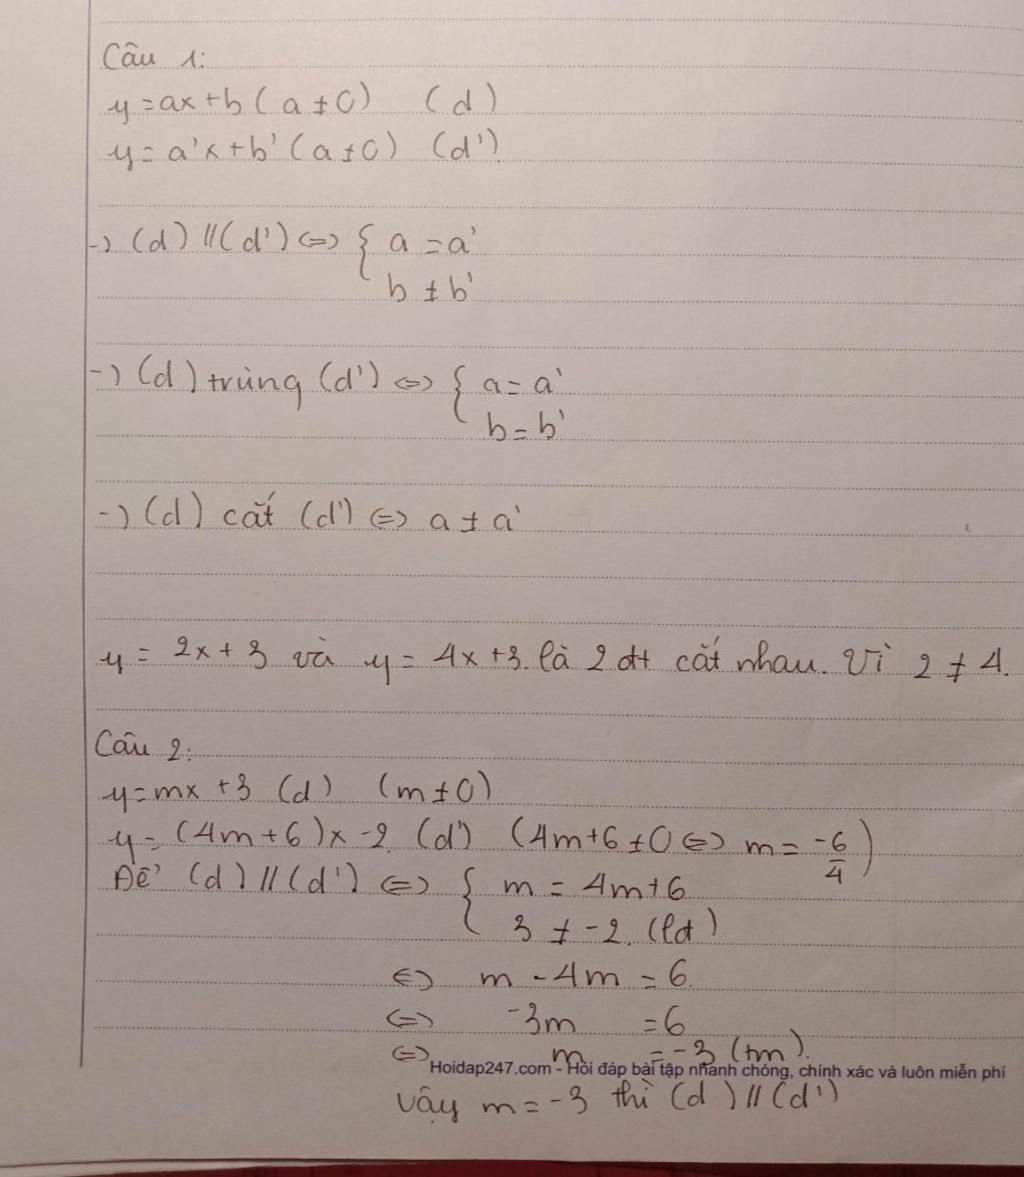 Câu 1:
y = ax + b ( a ≠ 0 ) ( d )
y = a'x + b' ( a ≠ 0 ) ( d' )
-) (d) // (d') <=> { a = a'
b ≠ b'
-) (d) trùng (d') <=> { a = a'
b = b'
-) (d) cắt (d') <=> a ≠ a'
y = 2x + 3 và y = 4x + 3 là 2 đt cắt nhau. Vì 2 ≠ 4.
Câu 2:
y = mx + 3 (d) (m ≠ 0)
y = (4m + 6)x - 2 (d') (4m + 6 ≠ 0 <=> m = -6/4)
Để (d) // (d') <=> { m = 4m + 6
3 ≠ -2. (lđ)
<=> m - 4m = 6
<=> -3m = 6
<=> m = -3 (tm).
Hoidap247.com - Hỏi đáp bài tập nhanh chóng, chính xác và luôn miễn phí
Vậy m = -3 thì (d) // (d')